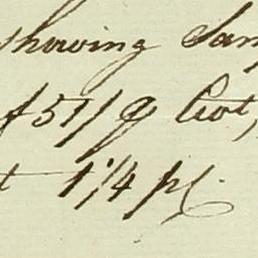 showing Sam
of 51/9 Cwt,
t 1¼ p